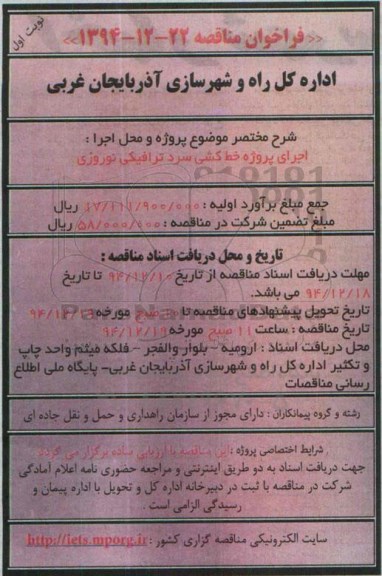 نوبت اول
<<فراخوان مناقصه ۲۲-۱۲-۱۳۹۴>>
اداره کل راه و شهرسازی آذربایجان غربی
شرح مختصر موضوع پروژه و محل اجرا :
اجرای پروژه خط کشی سرد ترافیکی نوروزی
جمع مبلغ برآورد اولیه : ۱۷/۱۱۱/۹۰۰/۰۰۰ ریال
مبلغ تضمین شرکت در مناقصه : ۵۸/۰۰۰/۰۰۰ ریال
تاریخ و محل دریافت اسناد مناقصه :
مهلت دریافت اسناد مناقصه از تاریخ ۹۴/۱۲/۱۰ تا تاریخ
۹۴/۱۲/۱۸ می باشد.
تاریخ تحویل پیشنهادهای مناقصه تا ۱۰ صبح مورخه ۹۴/۱۲/۱۹
تاریخ مناقصه : ساعت ۱۱ صبح مورخه ۹۴/۱۲/۱۹
محل دریافت اسناد : ارومیه - بلوار والفجر - فلکه میثم واحد چاپ
و تکثیر اداره کل راه و شهرسازی آذربایجان غربی- پایگاه ملی اطلاع
رسانی مناقصات
رشته و گروه پیمانکاران : دارای مجوز از سازمان راهداری و حمل و نقل جاده ای
شرایط اختصاصی پروژه : این مناقصه با ارزیابی ساده برگزار می گردد
جهت دریافت اسناد به دو طریق اینترنتی و مراجعه حضوری نامه اعلام آمادگی
شرکت در مناقصه با ثبت در دبیرخانه اداره کل و تحویل با اداره پیمان و
رسیدگی الزامی است .
سایت الکترونیکی مناقصه گزاری کشور : http://iets.mporg.ir